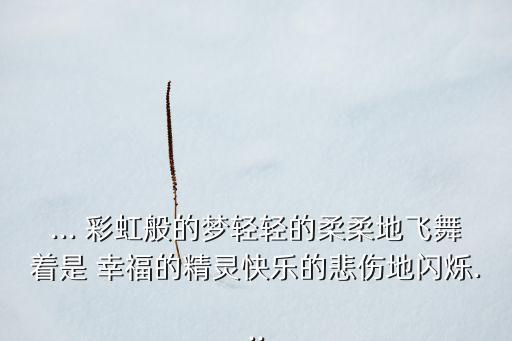 ... 彩虹般的梦轻轻的柔柔地飞舞
着是 幸福的精灵快乐的悲伤地闪烁.
..